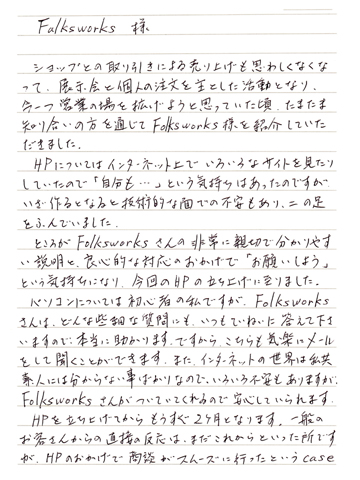 Folksworks 様
ショップとの取り引きによる売り上げも思わしくなくな
って、展示会と個人の注文を主とした活動となり、
今一つ営業の場を拡げようと思っていた頃、たまたま
知り合いの方を通じてFolksworks様を紹介していた
だきました。
HPについてはインターネット上でいろいろなサイトを見たり
していたので「自分も…」という気持ちはあったのですが
いざ作るとなると技術的な面での不安もあり、二の足
をふんでいました。
ところがFolksworksさんの非常に親切で分かりやす
い説明と、良心的な対応のおかげで「お願いしよう」
という気持ちになり、今回のHPの立ち上げに至りました。
パソコンについては初心者の私ですが、Folksworks
さんは、どんな些細な質問にも、いつもていねいに答えて下さ
いますので本当に助かります。ですから、こちらも気楽にメール
をして聞くことができます。また、インターネットの世界は私共
素人には分からない事ばかりなので、いろいろ不安もありますが、
Folksworksさんがついていてくれるので安心していられます。
HPを立ち上げてからもうすぐ2ヶ月となります。一般の
お客さんからの直接の反応は、まだこれからといった所です
が、HPのおかげで商談がスムーズに行ったというcase